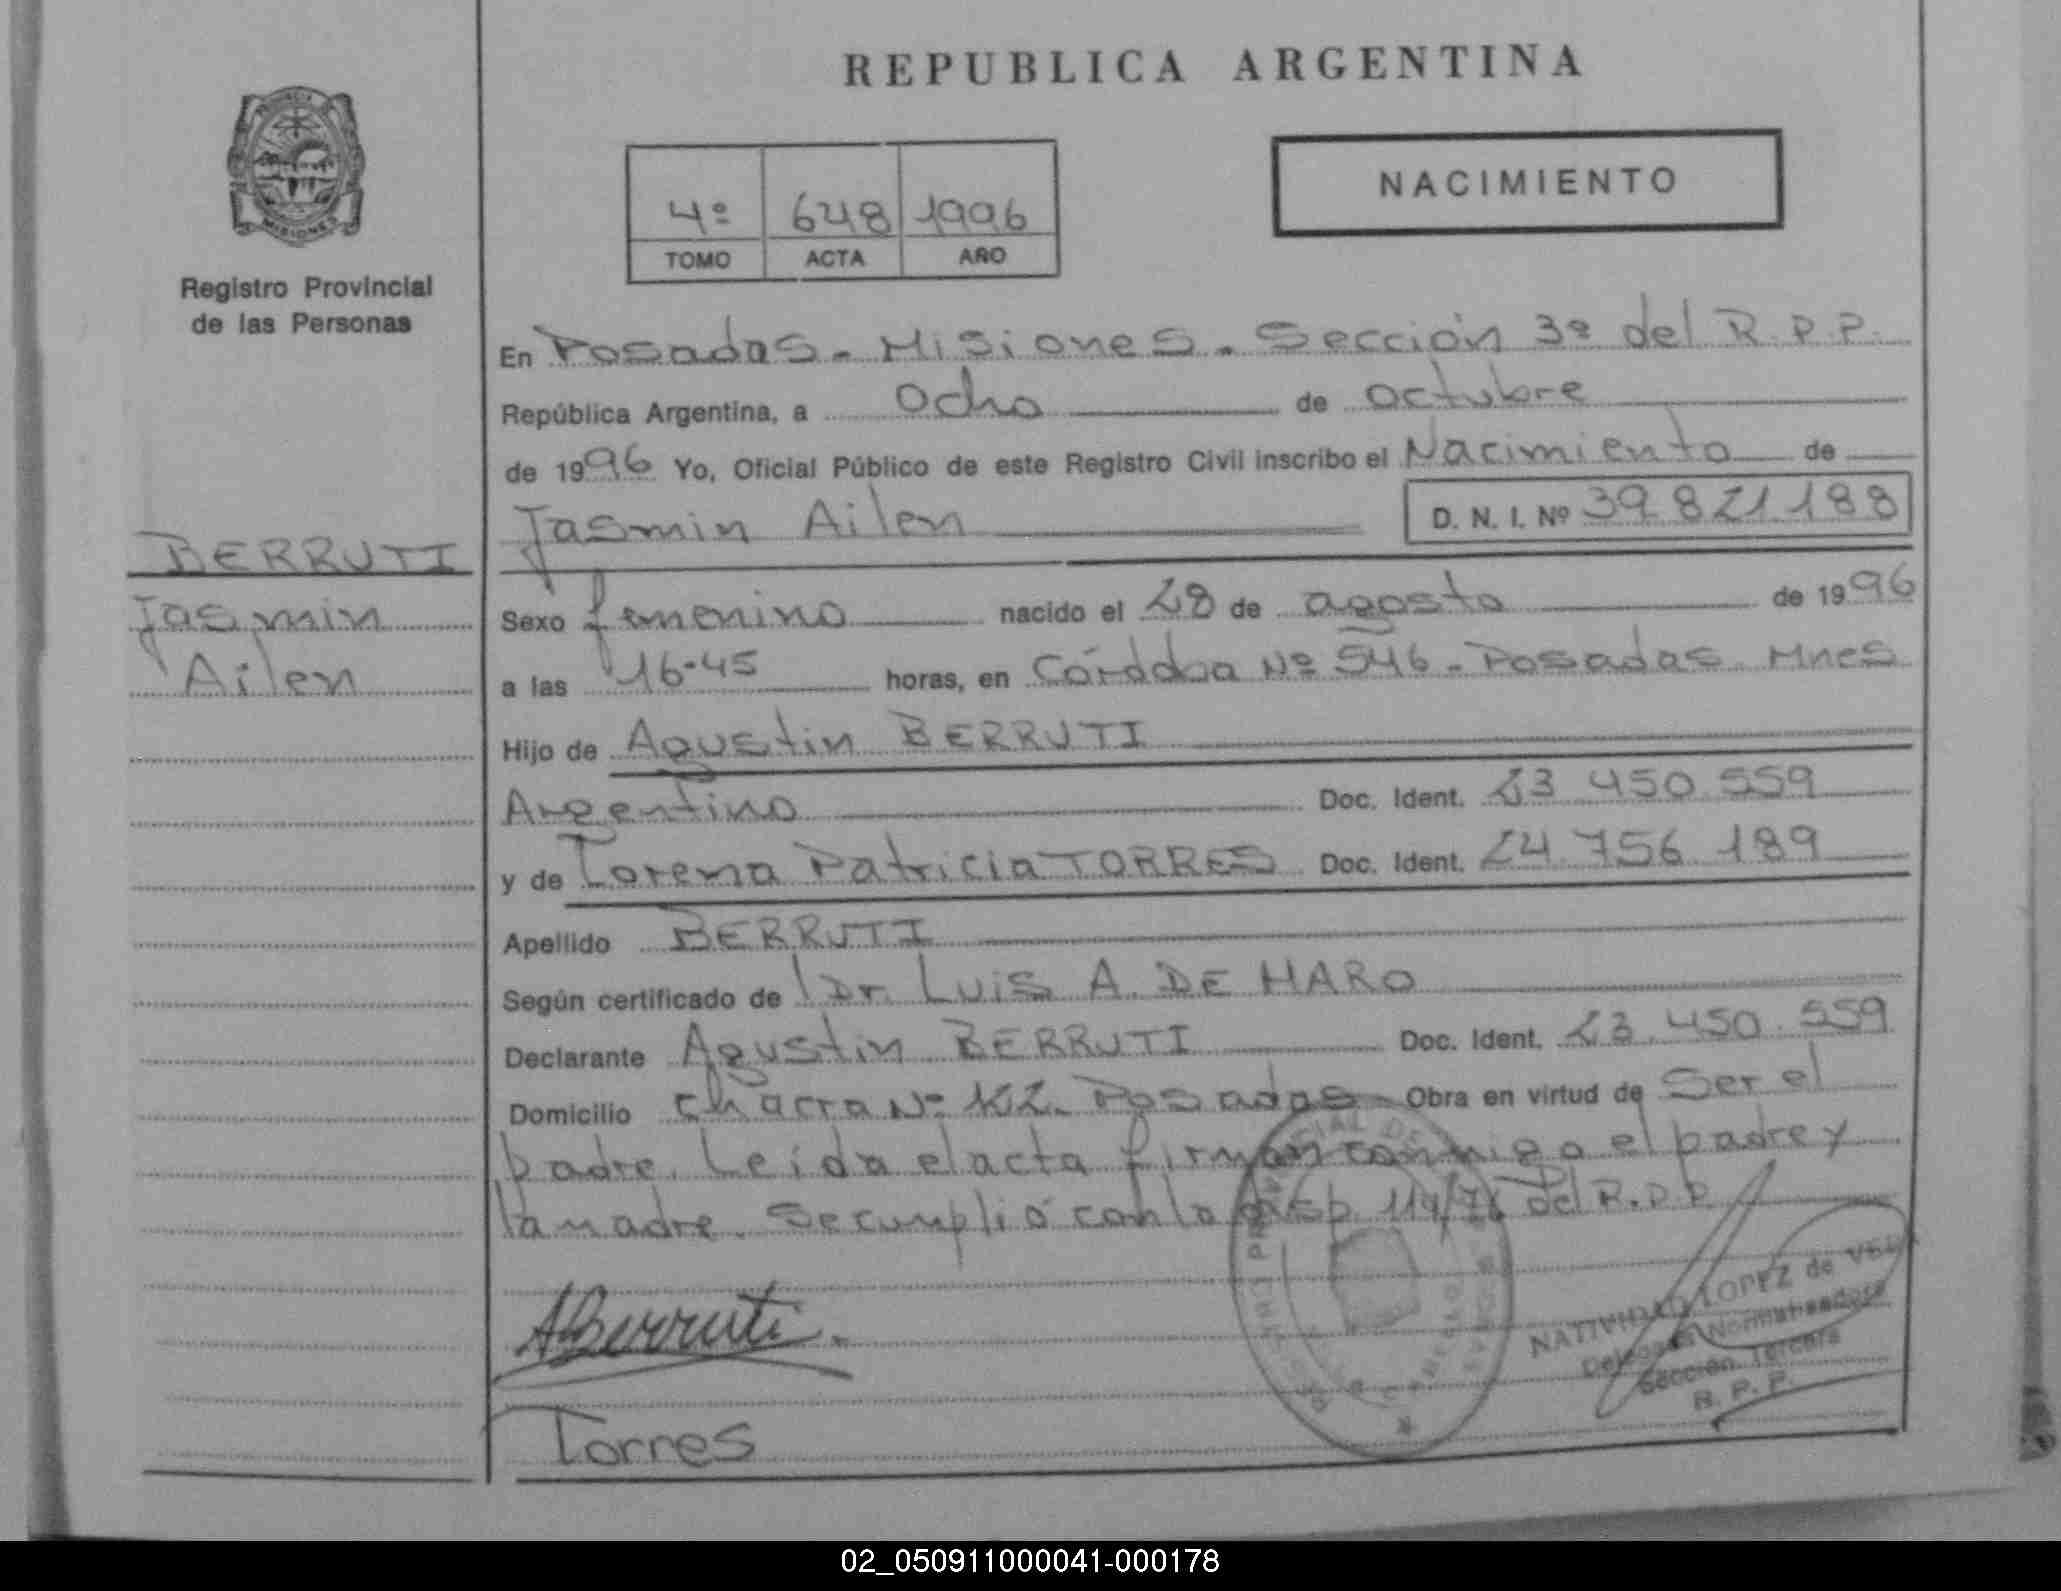 REPUBLICA ARGENTINA
PROVINCIA
MISIONES
Registro Provincial
de las Personas
4º 648 1996
TOMO ACTA AÑO
NACIMIENTO
En Posadas - Misiones - Sección 3º del R.P.P.
República Argentina, a Ocho de octubre
de 1996 Yo, Oficial Público de este Registro Civil inscribo el Nacimiento de
Jasmin Ailen D. N. I. Nº 39.821.188
BERRUTI
Jasmin
Ailen
Sexo femenino nacido el 28 de agosto de 1996
a las 16.45 horas, en Córdoba Nº 546 - Posadas Mnes
Hijo de Agustin BERRUTI
Argentino Doc. Ident. 23.450.559
y de Lorena Patricia TORRES Doc. Ident. 24.756.189
Apellido BERRUTI
Según certificado de Dr. Luis A. DE HARO
Declarante Agustin BERRUTI Doc. Ident. 23.450.559
Domicilio chacra Nº Posadas - Obra en virtud de Ser el
padre. Leída el acta firman conmigo el padre y
la madre. Se cumplió con la disp. 119/76 del R.P.P.
ABerruti
Torres
NATIVIDAD LOPEZ de
Delegada Normalizadora
Sección Tercera
R. P. P.
02_050911000041-000178